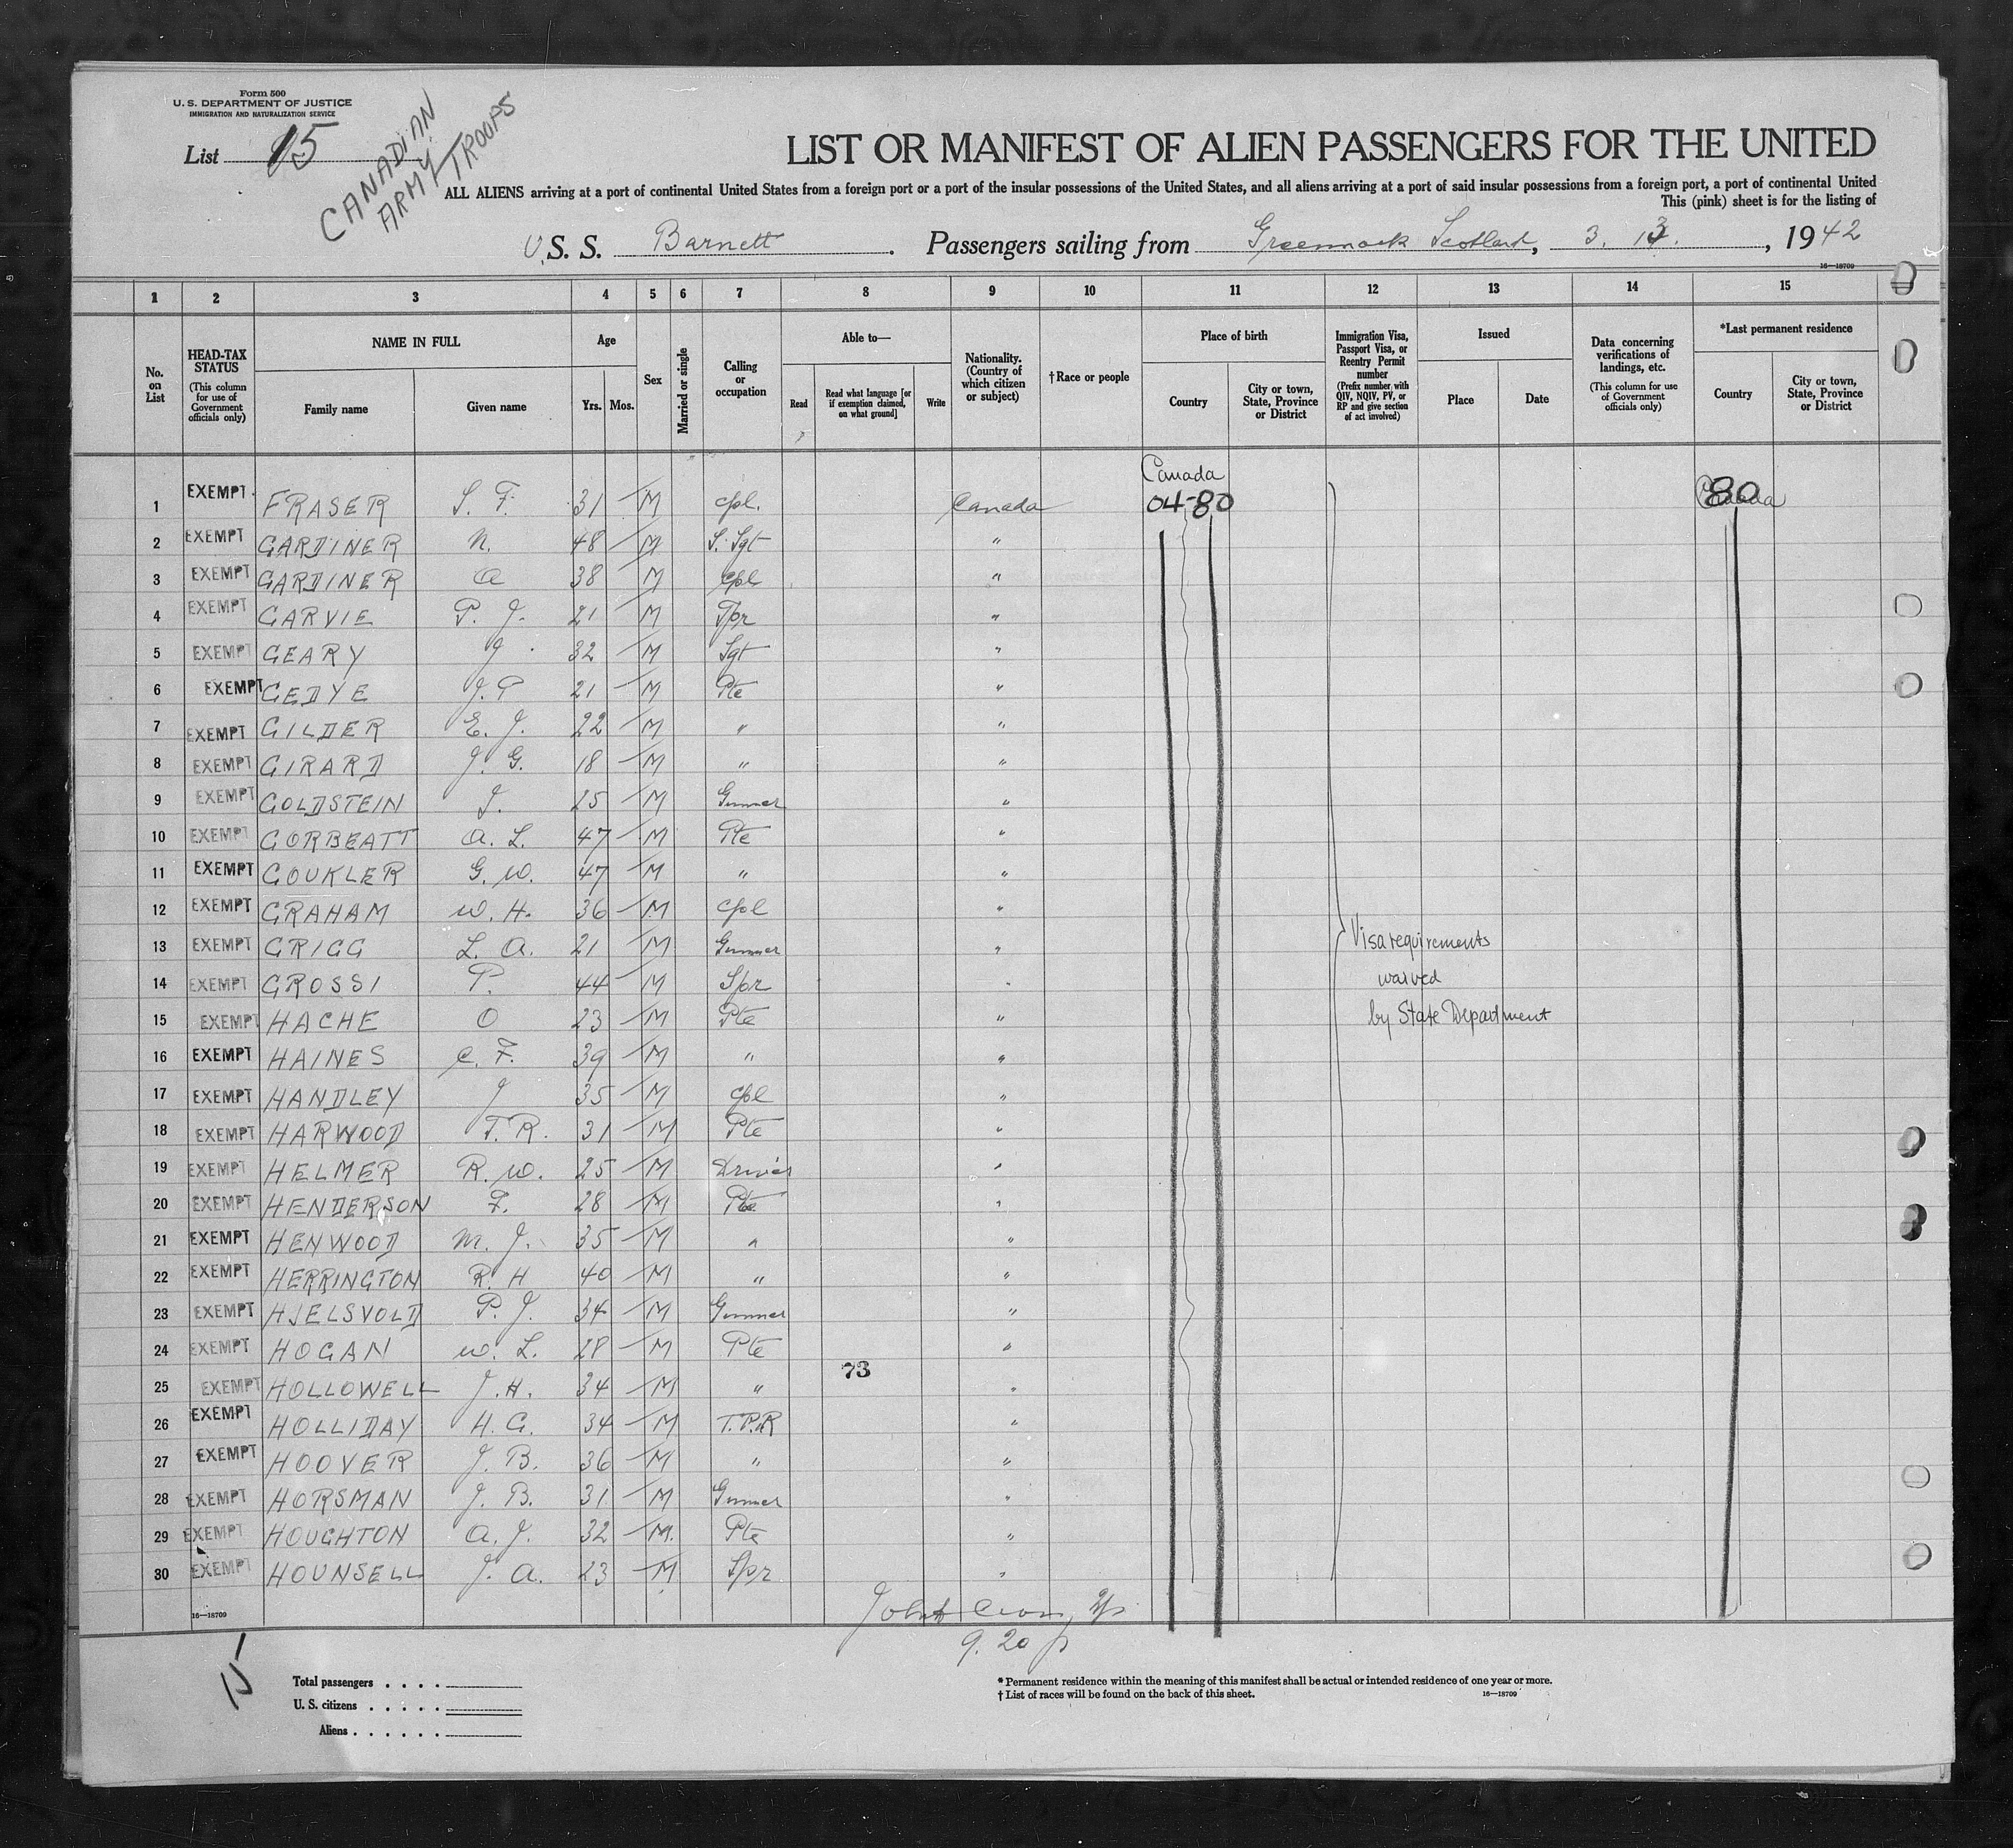 Form 500
U. S. DEPARTMENT OF JUSTICE
IMMIGRATION AND NATURALIZATION SERVICE
List 15
CANADIAN
ARMY TROOPS
LIST OR MANIFEST OF ALIEN PASSENGERS FOR THE UNITED
ALL ALIENS arriving at a port of continental United States from a foreign port or a port of the insular possessions of the United States, and all aliens arriving at a port of said insular possessions from a foreign port, a port of continental United
This (pink) sheet is for the listing of
U.S. S. Barnett. Passengers sailing from Greennock Scotland, 3. 13., 1942
16—18709
1 2 3 4 5 6 7 8 9 10 11 12 13 14 15
No. on List
HEAD-TAX STATUS (This column for use of Government officials only)
NAME IN FULL
Family name Given name
Age
Yrs. Mos.
Sex
Married or single
Calling or occupation
Able to—
Read Read what language [or if exemption claimed, on what ground] Write
Nationality. (Country of which citizen or subject)
†Race or people
Place of birth
Country City or town, State, Province or District
Immigration Visa, Passport Visa, or Reentry Permit number (Prefix number with QIV, NQIV, PV, or RP and give section of act involved)
Issued
Place Date
Data concerning verifications of landings, etc. (This column for use of Government officials only)
*Last permanent residence
Country City or town, State, Province or District
Canada
1 EXEMPT FRASER S. F. 31 M Cpl. Canada 04-80 Canada 80
2 EXEMPT GARDINER N. 48 M S. Sgt "
3 EXEMPT GARDINER A 38 M Cpl "
4 EXEMPT GARVIE P. J. 21 M Tpr "
5 EXEMPT GEARY J. 32 M Sgt "
6 EXEMPT GEDYE J. P 21 M Pte "
7 EXEMPT GILDER E. J. 22 M " "
8 EXEMPT GIRARD J. G. 18 M " "
9 EXEMPT GOLDSTEIN J. 25 M Gunner "
10 EXEMPT GORBEATT A. L. 47 M Pte "
11 EXEMPT GOUKLER G. W. 47 M " "
12 EXEMPT GRAHAM W. H. 36 M Cpl "
13 EXEMPT GRIGG L. A. 21 M Gunner " Visa requirements
14 EXEMPT GROSSI P. 44 M Spr " waived
15 EXEMPT HACHE O 23 M Pte " by State Department
16 EXEMPT HAINES C. F. 39 M " "
17 EXEMPT HANDLEY J 35 M Cpl "
18 EXEMPT HARWOOD T. R. 31 M Pte "
19 EXEMPT HELMER R. W. 25 M Driver "
20 EXEMPT HENDERSON F. 28 M Pte "
21 EXEMPT HENWOOD M. J. 35 M " "
22 EXEMPT HERRINGTON R. H 40 M " "
23 EXEMPT HJELSVOLD P. J. 34 M Gunner "
24 EXEMPT HOGAN W. L. 28 M Pte "
73
25 EXEMPT HOLLOWELL J. H. 34 M " "
26 EXEMPT HOLLIDAY H. G. 34 M T.P.R "
27 EXEMPT HOOVER J. B. 36 M " "
28 EXEMPT HORSMAN J. B. 31 M Gunner "
29 EXEMPT HOUGHTON A. J. 32 M. Pte "
30 EXEMPT HOUNSELL J. A. 23 M Spr "
16—18709
9.20 p
15
Total passengers . . . .
U. S. citizens . . . . .
Aliens . . . . . .
* Permanent residence within the meaning of this manifest shall be actual or intended residence of one year or more.
† List of races will be found on the back of this sheet.
16—18709